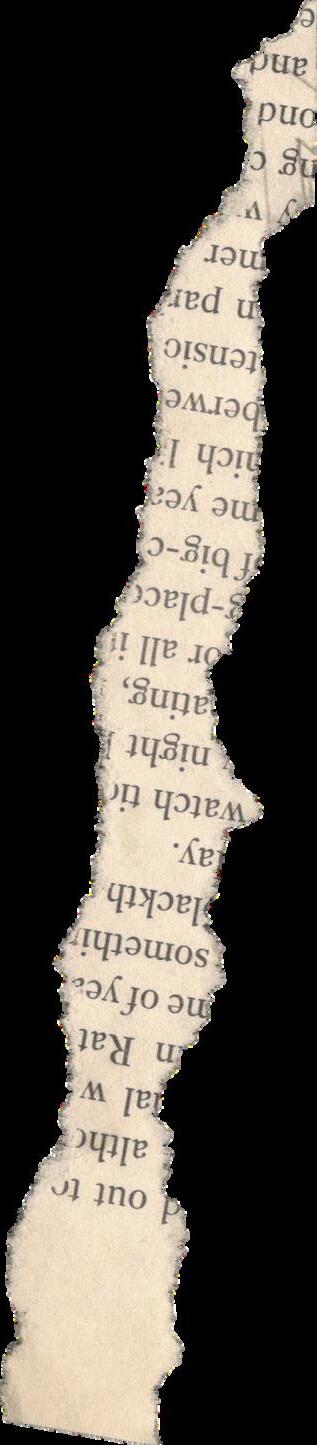 d out to
altho
ial w
n Rat
me of yea
somethin
lackth
ay.
watch tic
night
ating,
or all i
g-place
f big-c
me yea
hich l
berwe
tensio
n par
mer
y v
ng c
ond
and
e